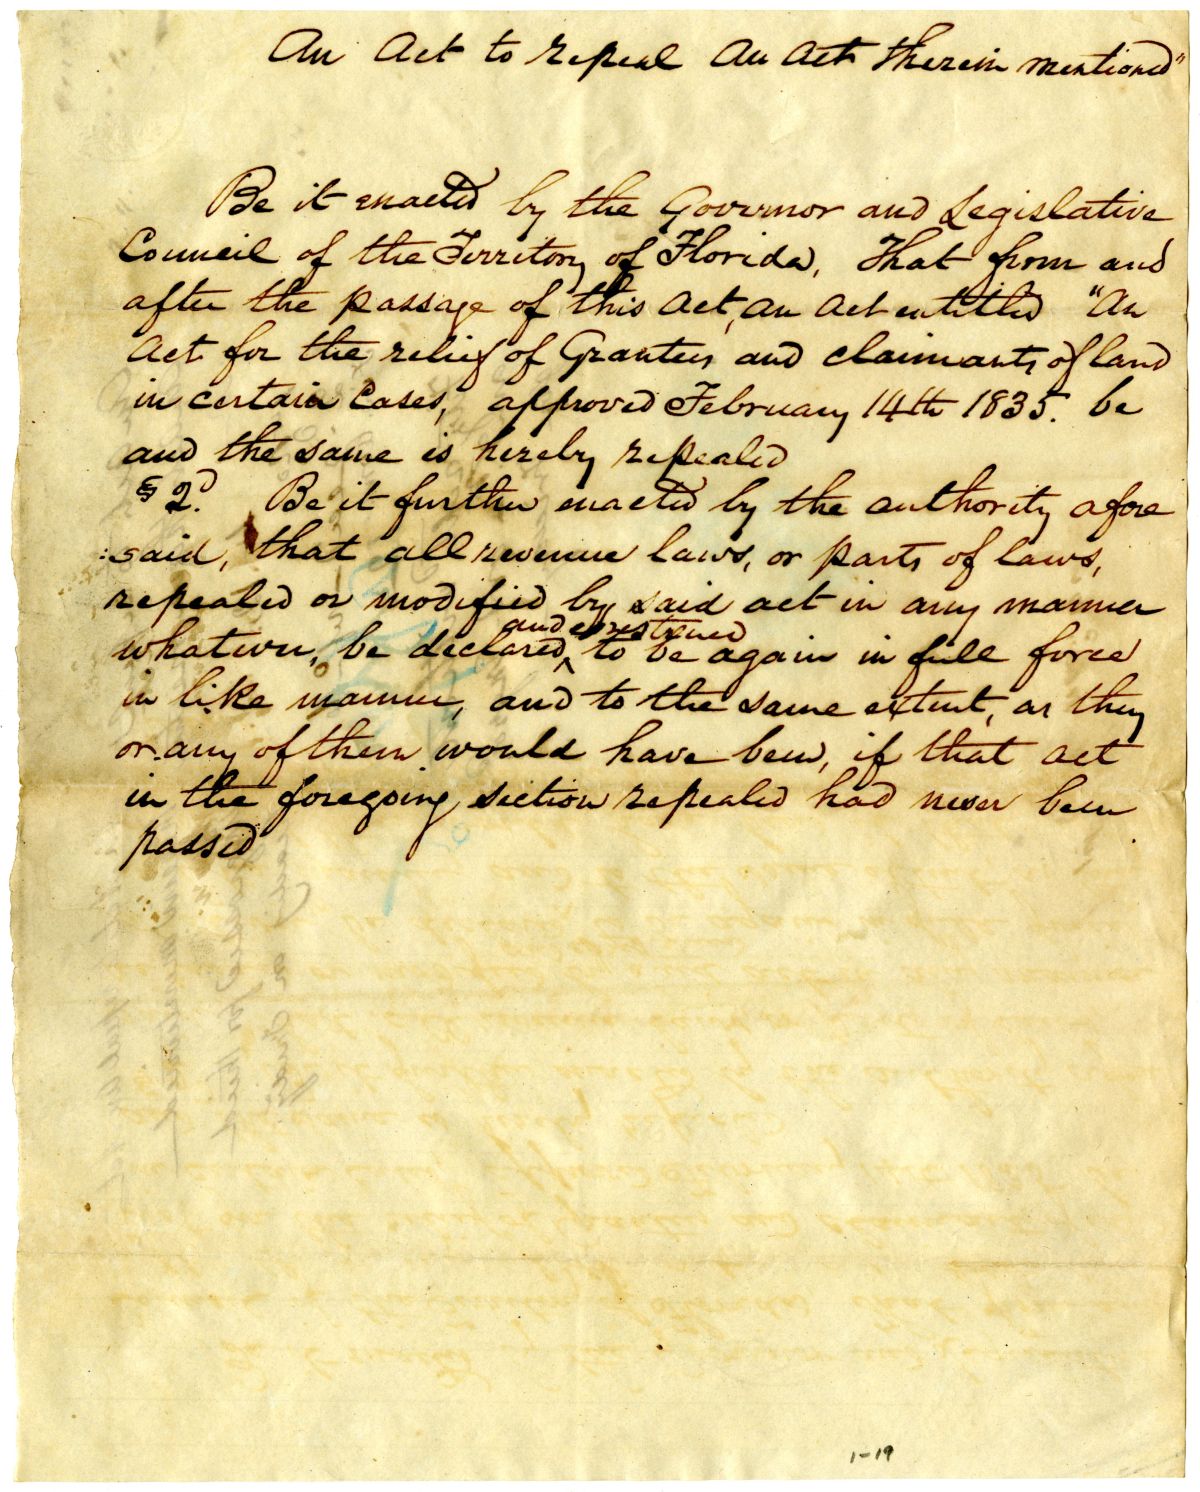 An Act to repeal An Act therein mentioned"
Be it enacted by the Governor and Legislative
Council of the Territory of Florida, That from and
after the passage of this Act, An Act entitled "An
Act for the relief of Grantees and claimants of land
in certain Cases, approved February 14th 1835. be
and the same is hereby repealed
§ 2d. Be it further enacted by the authority afore
:said, that all revenue laws, or parts of laws,
repealed or modified by said act in any manner
and
whatever, be declared, ^ to be again in full force
in like manner, and to the same extent, as they
or any of them would have been, if that act
in the foregoing section repealed had never been
passed
1-19